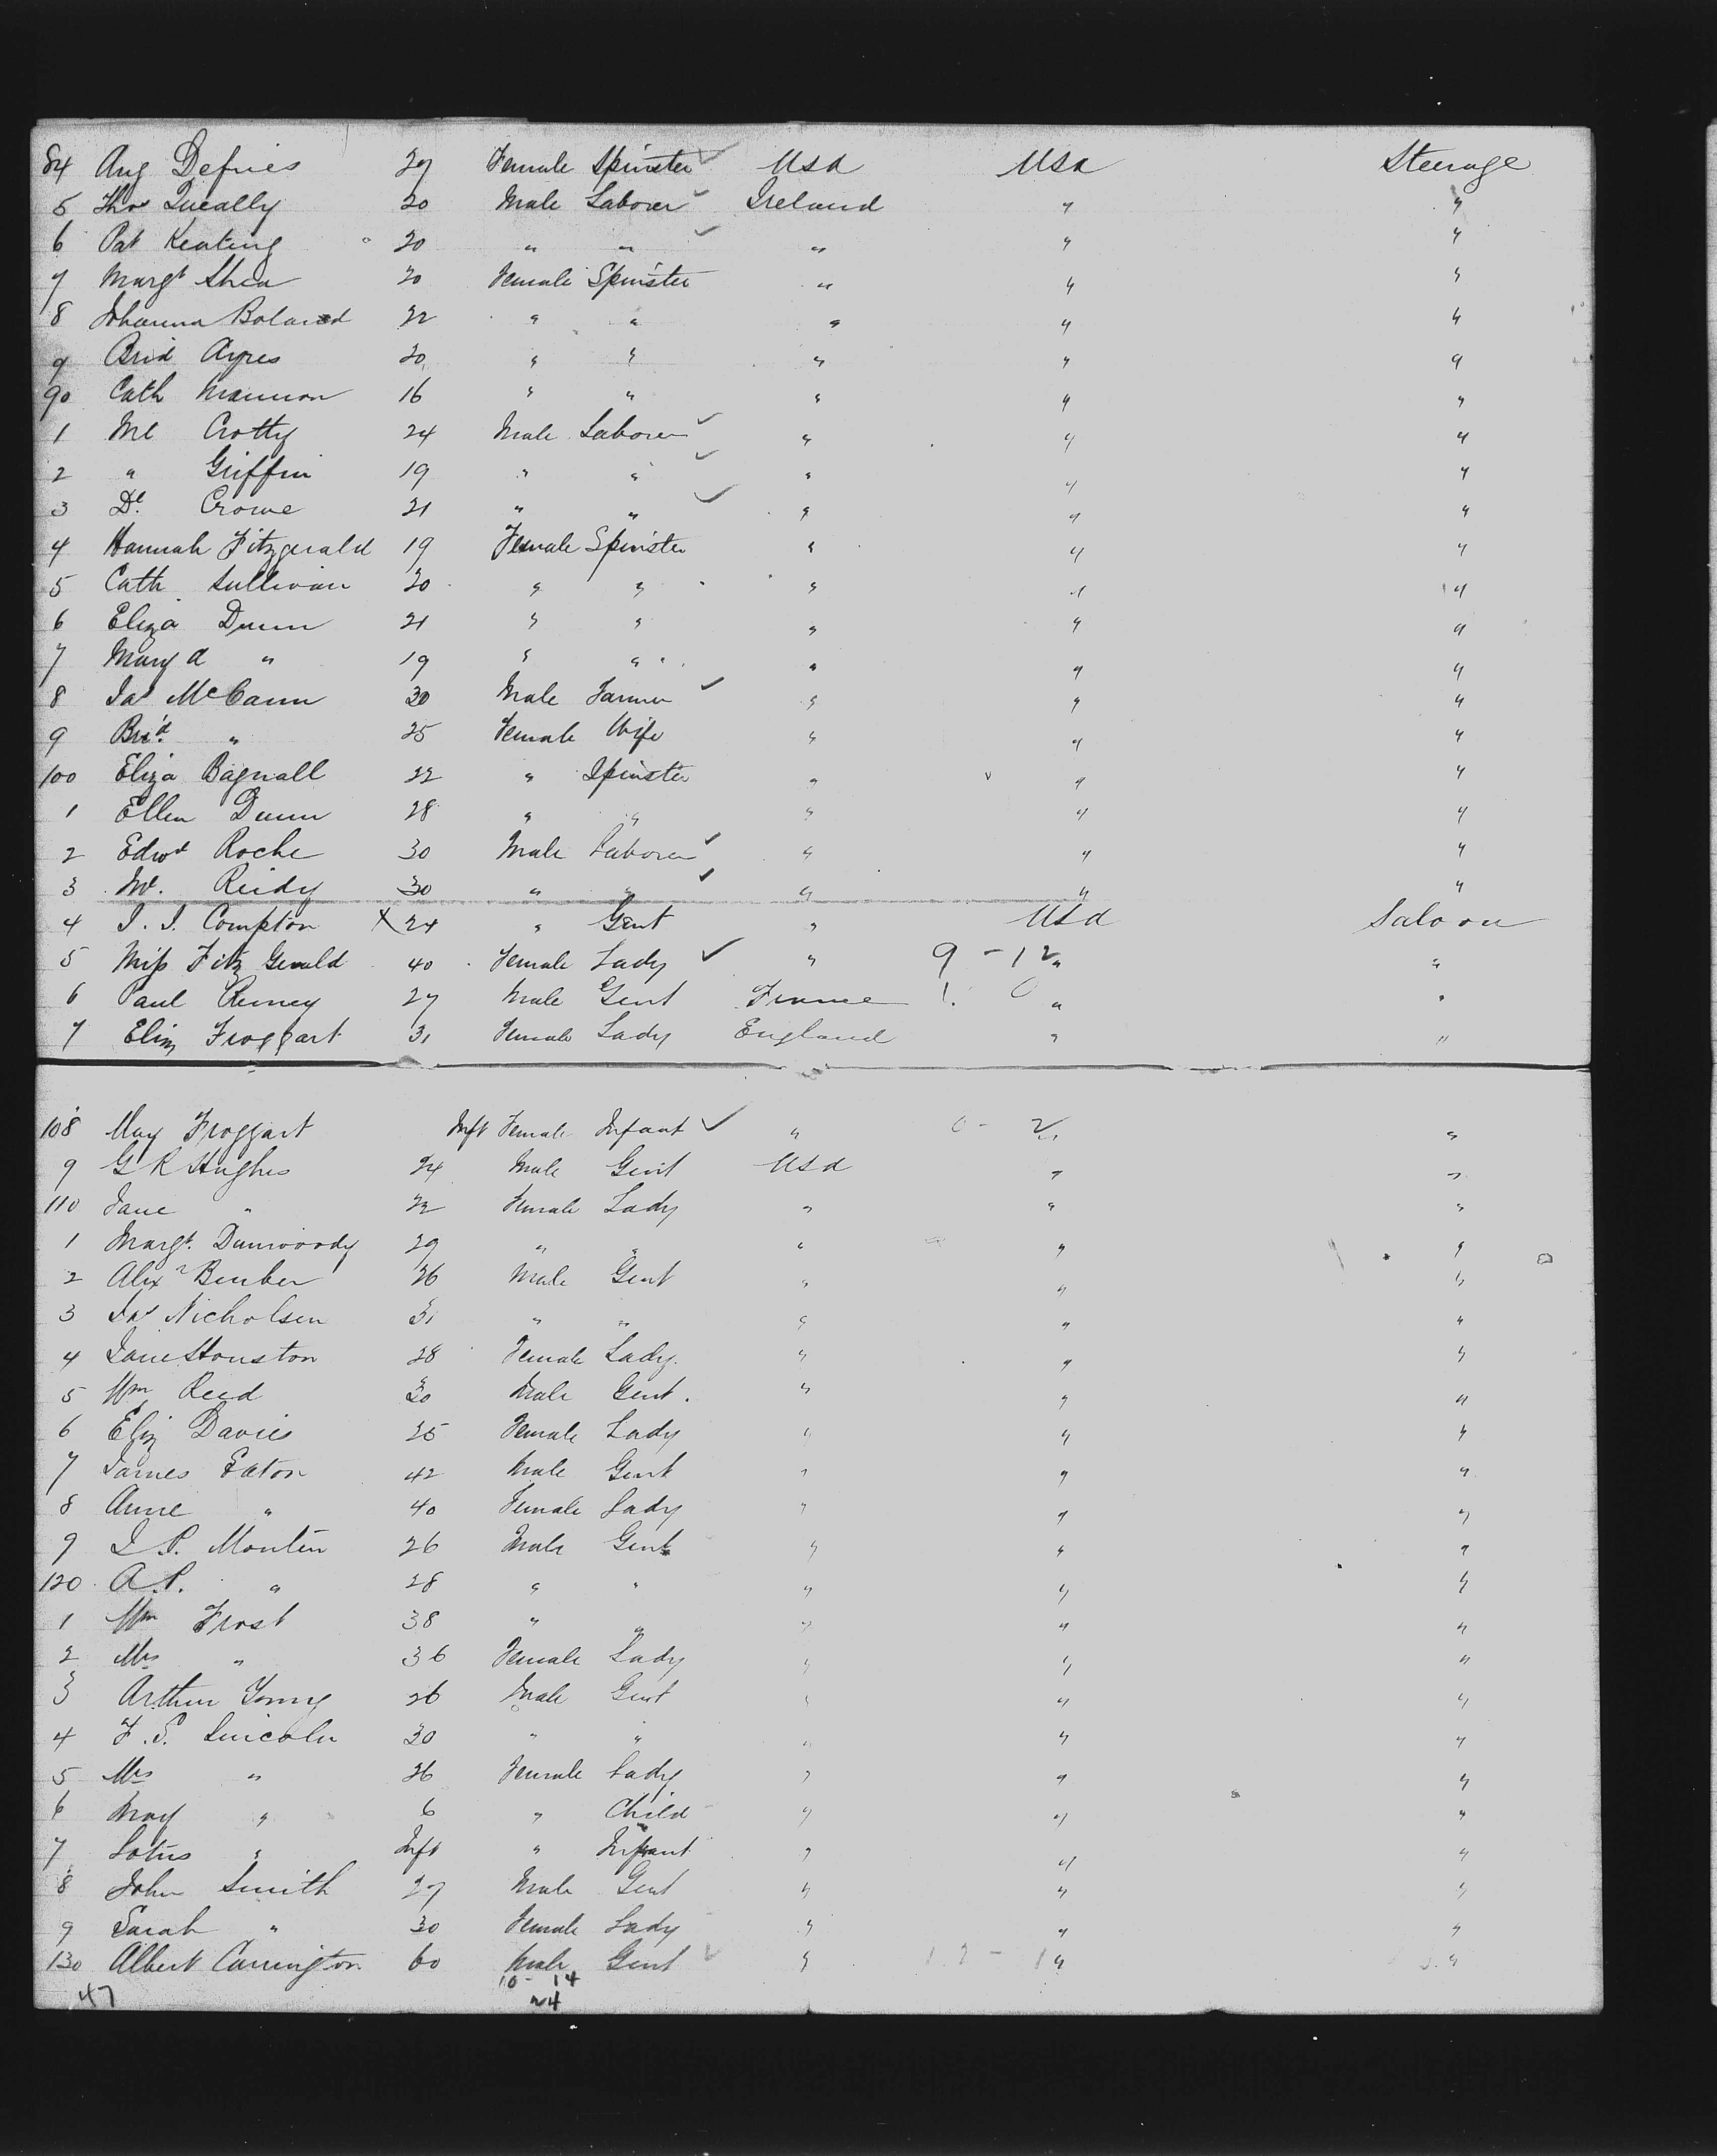 84 Aug Defries 27 Female Spinster USA USA Steerage
5 Thos Queally 20 Male Laborer Ireland " "
6 Pat Keating 20 " " " " "
7 Margt Shea 20 Female Spinster " " "
8 Johanna Boland 22 " " " " "
9 Brid Ayres 20 " " " " "
90 Cath Mannion 16 " " " " "
1 Ml Crotty 24 Male Laborer " " "
2 " Griffin 19 " " " " "
3 Dl. Crowe 21 " " " " "
4 Hannah Fitzgerald 19 Female Spinster " " "
5 Cath Sullivan 20 " " " " "
6 Eliza Dunn 21 " " " " "
7 Mary A " 19 " " " " "
8 Jas McCann 30 Male Farmer " " "
9 Brid. " 25 Female Wife " " "
100 Eliza Bagnall 22 " Spinster " " "
1 Ellen Dunn 28 " " " " "
2 Edwd Roche 30 Male Laborer " " "
3 Reidy 30 " " " " "
4 J. J. Compton X 24 " Gent " USA Saloon
5 Miss Fitz Gerald 40 Female Lady " 9 - 12 " "
6 Paul 27 Male Gent France " "
7 Eliz Froggart 31 Female Lady England " "
108 May Froggart Inft Female Infant " 0 - 2 " "
9 G R Hughes 24 Male Gent USA " "
110 Jane " 22 Female Lady " " "
1 Margt. Dunwoody 29 " " " " "
2 Alexr 26 Male Gent " " "
3 Jas Nicholsen 31 " " " " "
4 Jane Houston 28 Female Lady. " " "
5 Wm Reed 30 Male Gent. " " "
6 Eliz Davies 25 Female Lady " " "
7 James Eaton 42 Male Gent " " "
8 Anne " 40 Female Lady " " "
9 J. P. Montin 26 Male Gent " " "
120 A. P. " 28 " " " " "
1 Wm Frost 38 " " " " "
2 Mrs " 36 Female Lady " " "
3 Arthur Young 26 Male Gent " " "
4 F. S. Lincoln 30 " " " " "
5 Mrs " 26 Female Lady " " "
6 May " 6 " Child " " "
7 Lotus " Inft " Infant " " "
8 John Smith 27 Male Gent " " "
9 Sarah " 30 Female Lady " " "
130 Albert Carrington 60 Male Gent " " "
47 10 - 14
24